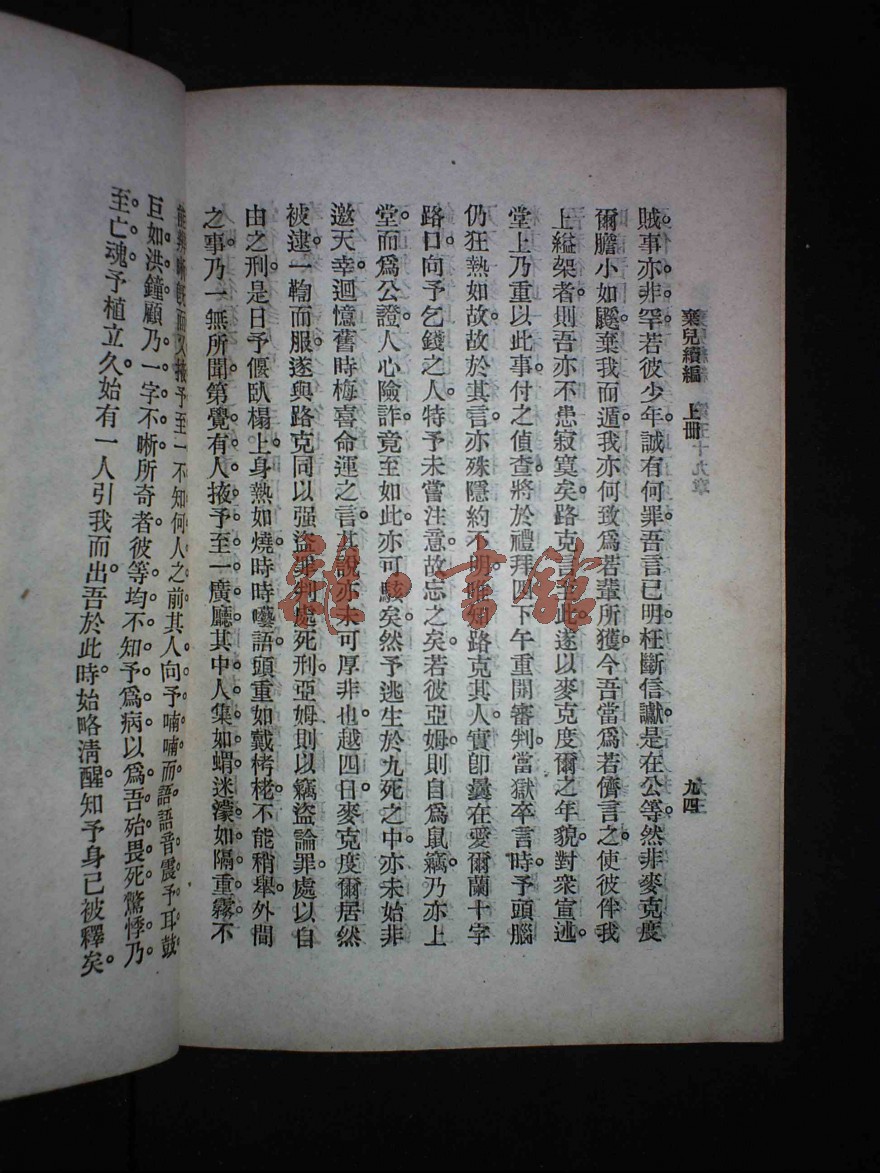 棄兒續編　上冊
九四
賊事亦非罕若彼少年誠有何罪吾言已明枉斷信讞是在公等然非麥克度
爾膽小如鼷棄我而遁我亦何致爲若輩所獲今吾當爲若儕言之使彼伴我
上縊架者則吾亦不患寂寞矣路克言至此遂以麥克度爾之年貌對衆宣述
堂上乃重以此事付之偵查將於禮拜四下午重開審判當獄卒言時予頭腦
仍狂熱如故故於其言亦殊隱約不明路克其人實卽曩在愛爾蘭十字
路口向予乞錢之人特予未嘗注意故忘之矣若彼亞姆則自爲鼠竊乃亦上
堂而爲公證人心險詐竟至如此亦可駭矣然予逃生於九死之中亦未始非
邀天幸迴憶舊時梅喜命運之言其說亦未可厚非也越四日麥克度爾居然
被逮一鞫而服遂與路克同以强盜罪判處死刑亞姆則以竊盜論罪處以自
由之刑是日予偃臥榻上身熱如燒時時囈語頭重如戴栲栳不能稍舉外間
之事乃一無所聞第覺有人掖予至一廣廳其中人集如蝟迷濛如隔重霧不
能辨晰旣而又掖予至一不知何人之前其人向予喃喃而語語音震予耳鼓
巨如洪鐘顧乃一字不晰所奇者彼等均不知予爲病以爲吾殆畏死驚悸乃
至亡魂予植立久始有一人引我而出吾於此時始略淸醒知予身已被釋矣
雜·书館